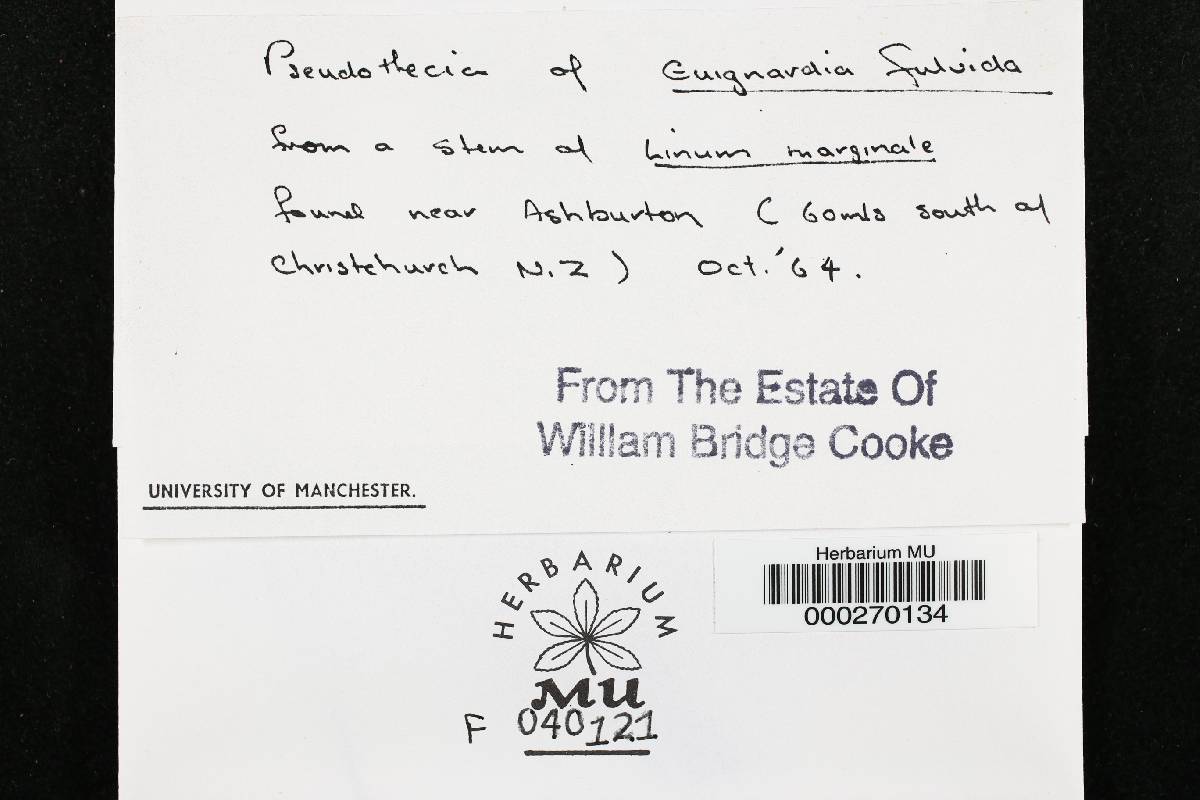 Pseudothecia of Guignardia fulvida
from a stem of Linum marginale
found near Ashburton ( 60mls south of
Christchurch N.Z ) Oct. '64.
From The Estate Of
William Bridge Cooke
UNIVERSITY OF MANCHESTER.
HERBARIUM
MU
F 040121
Herbarium MU
000270134